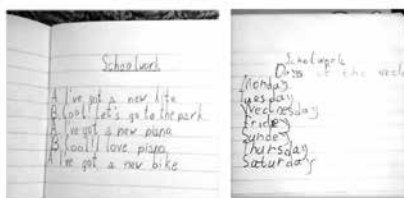 Schoolwork
A. I've got a new kite
B. Cool! Let's go to the park
A. I've got a new piano
B. Cool! I love piano
A. I've got a new bike
Schoolwork
Days of the week
Monday
Tuesday
Wednesday
Friday
Sunday
Thursday
Saturday